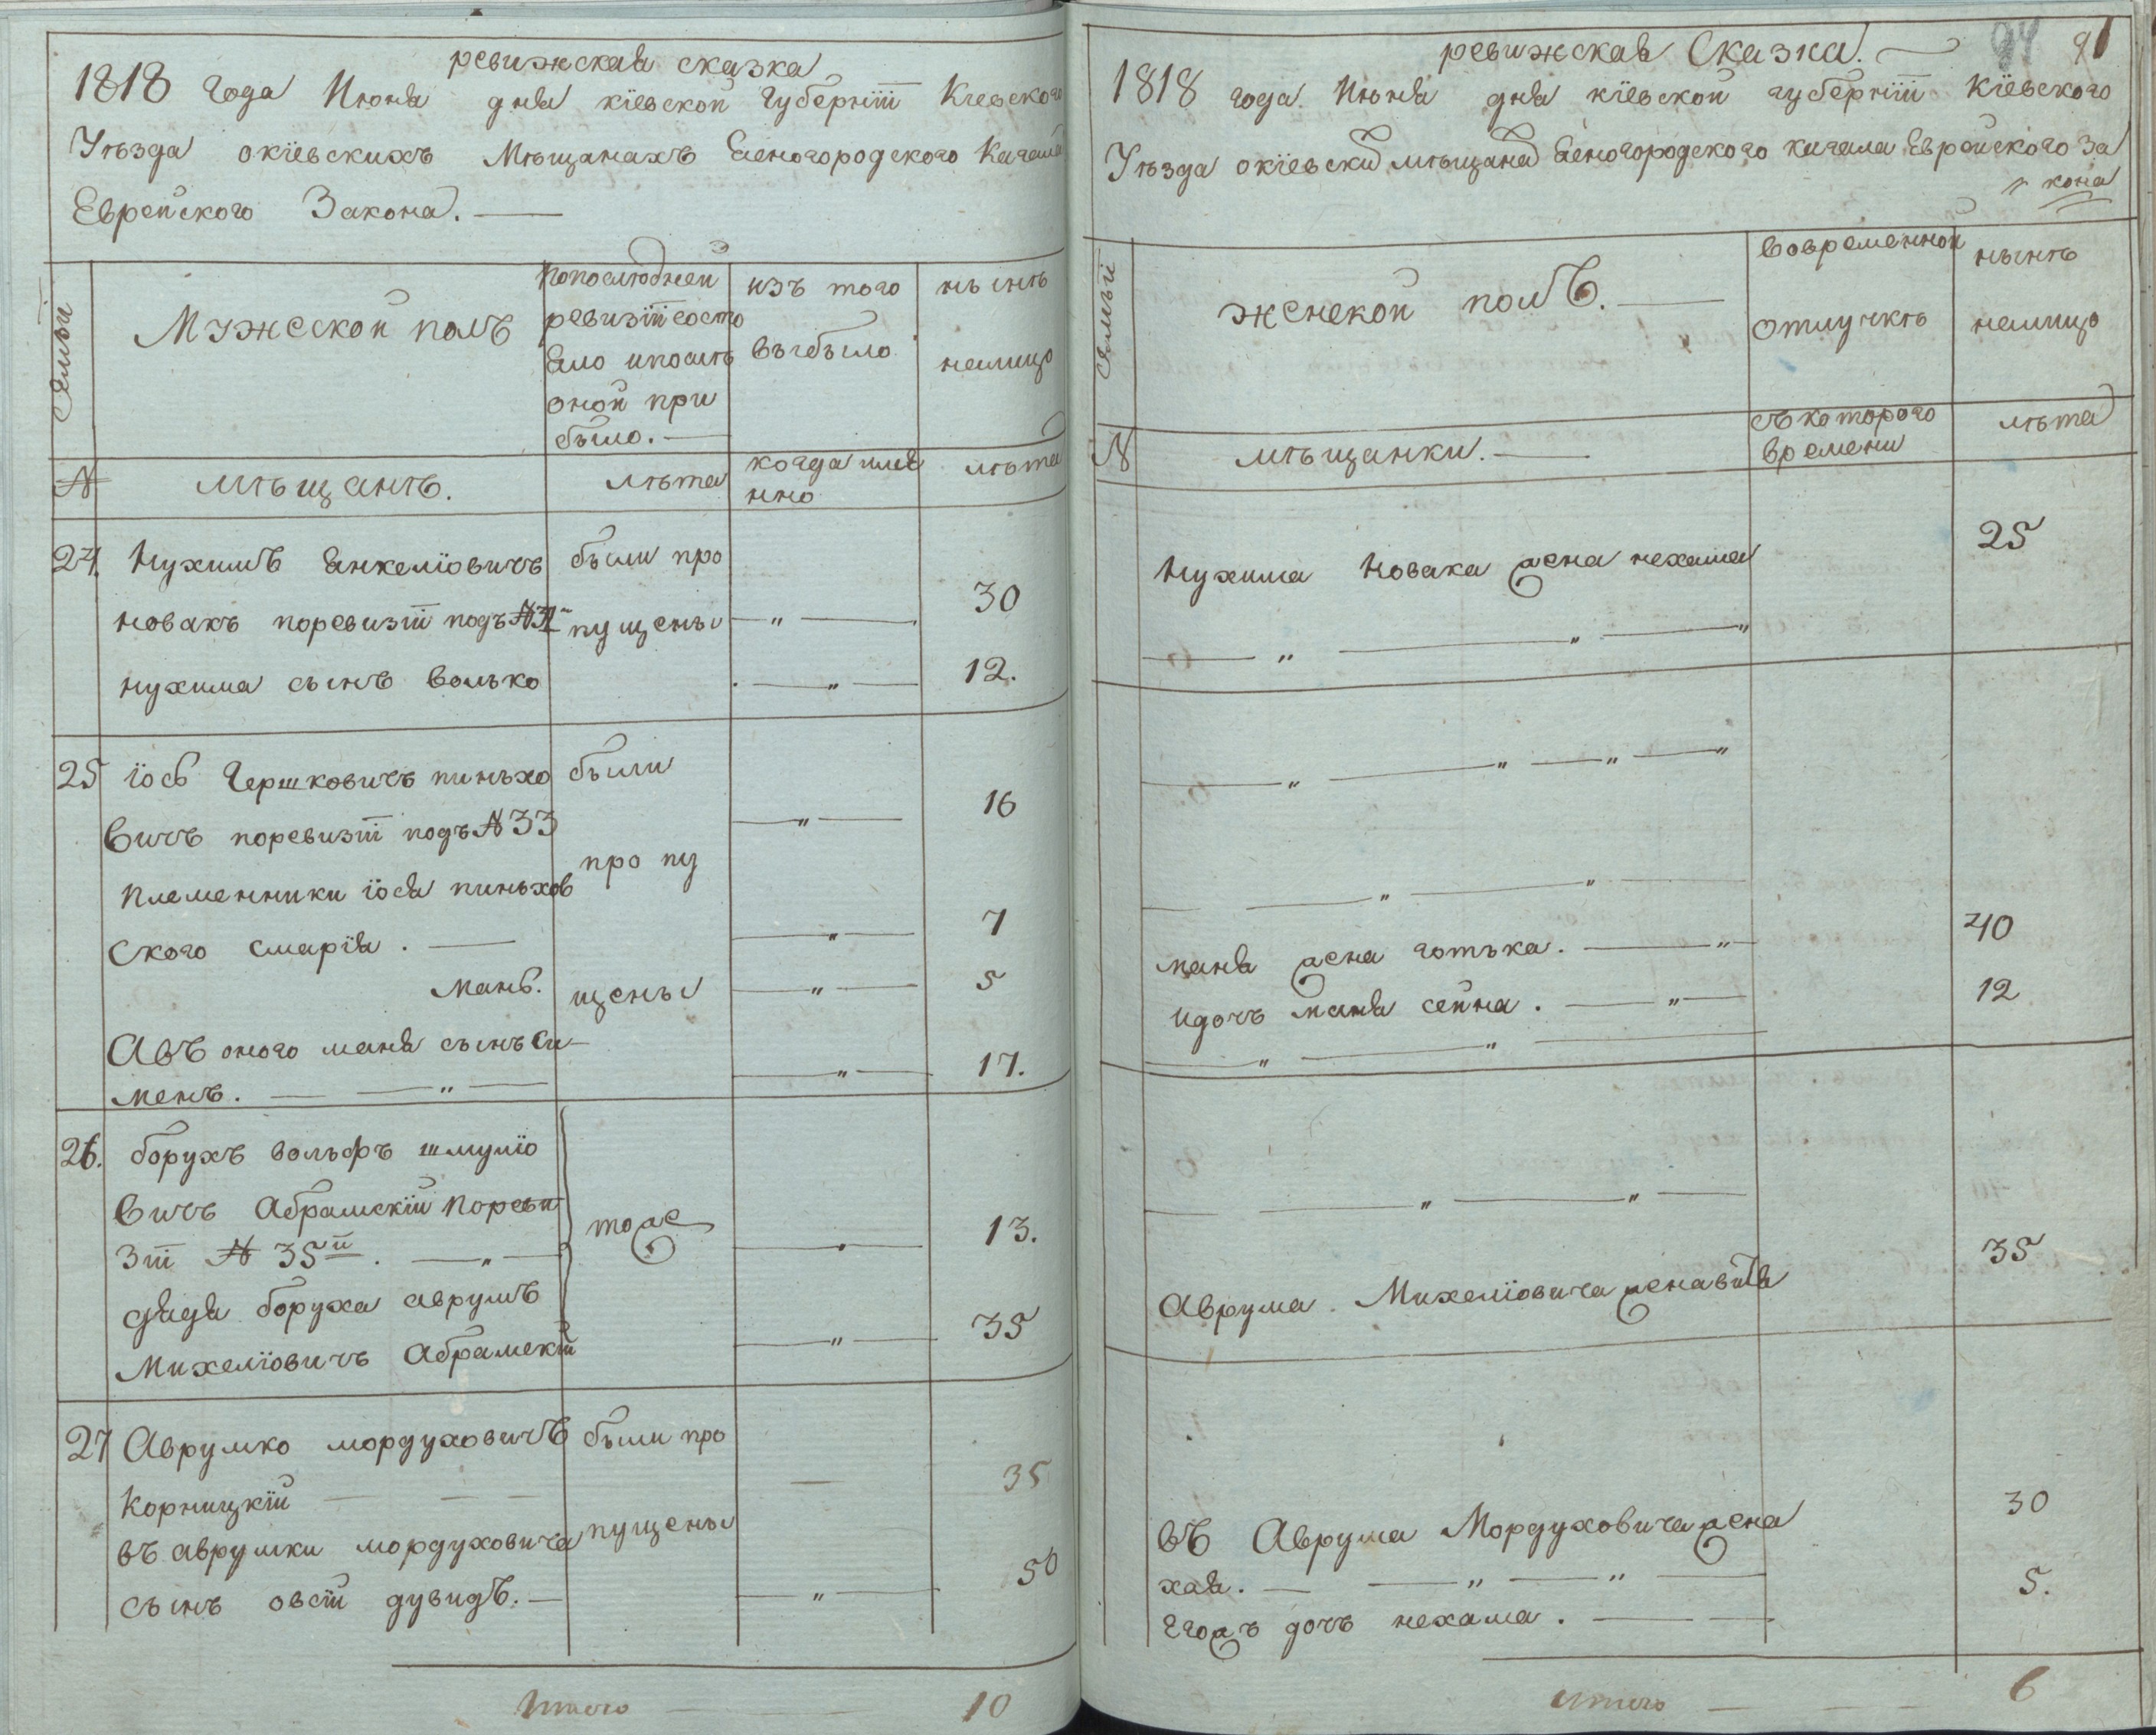 ревижская сказка
1818 года Июня дня кіевской губерніи Кіевского
Уѣзда окіевскихъ Мѣщанахъ Бѣногородского Кагала
Еврейского Закона.
Семьи
Мужеской полъ
попослюдней
ревизіи состо
яло ипослѣ
оной при
было.
изъ того
выбыло
нынѣ
налицо
№
мѣщанѣ.
лѣта
когда имя
нно
лѣта
24. Нухимъ Янкеліовичъ были про
новакъ поревизіи подъ №31 пущены — „ — 30
нухима сынъ волько — „ — 12.
25 іось Гершковичъ пиньхо были
вичъ поревизіи подъ №33 — „ — 16
племенники іося пиньхов про пу
ского смарія. — „ — 7
мань. щены — „ — 5
Авъ оного маня сынъ си
менъ. — „ — „ — 17.
26. борухъ вольфъ шмуліо
вичъ Абрамскій пореви
зіи № 35й. — „ — тоже — „ — 13.
дядя боруха аврумъ
Михеліовичъ абрамскій — „ — 35
27 Аврумко мордуховичъ были про
Корницкій — — — 35
въ аврумки мордуховича пущены
сынъ овсій дувидъ. — „ — 50
Итого — 10
94 91
ревижская Сказка.
1818 года Июня дня кіевской губерніи Кіевского
Уѣзда окіевски мѣщана Бѣногородского кагала Еврейского За
кона
Семьи
женской полъ.
вовременной
отлучкѣ
нынѣ
налицо
№
мѣщанки.
съкоторого
времени
лѣта
Нухима Новака жена нехама 25
— „ — „ — „
— „ — „ — „ — „
— „ — „ —
маня жена готька. — „ — 40
идочъ маня сейна. — „ — 12
— „ — „ —
— „ — „ —
Аврума Михеліовича жена 35
въ Аврума Мордуховича жена 30
хая. — „ — „ —
егожъ дочъ нехама. — 5.
итого — 6